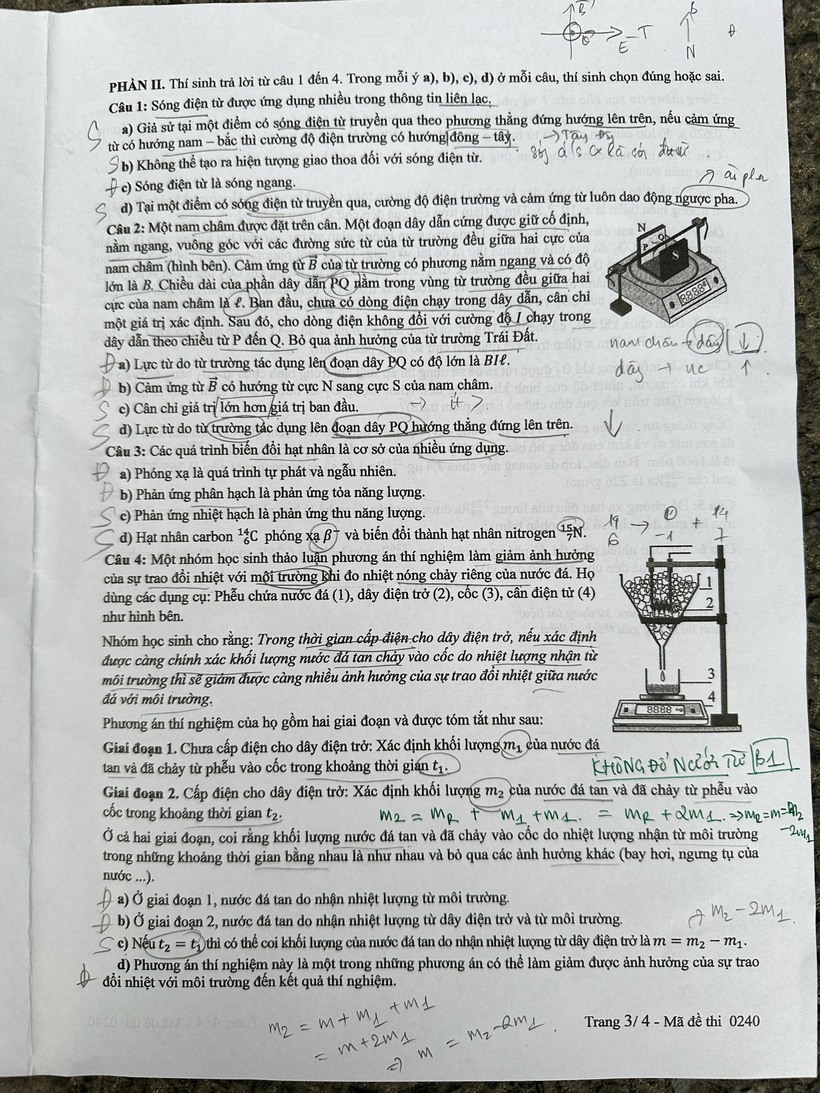 E T
N
PHẦN II. Thí sinh trả lời từ câu 1 đến 4. Trong mỗi ý a), b), c), d) ở mỗi câu, thí sinh chọn đúng hoặc sai.
Câu 1: Sóng điện từ được ứng dụng nhiều trong thông tin liên lạc.
S a) Giả sử tại một điểm có sóng điện từ truyền qua theo phương thẳng đứng hướng lên trên, nếu cảm ứng
từ có hướng nam – bắc thì cường độ điện trường có hướng đông – tây.
S b) Không thể tạo ra hiện tượng giao thoa đối với sóng điện từ.
Đ c) Sóng điện từ là sóng ngang.
S d) Tại một điểm có sóng điện từ truyền qua, cường độ điện trường và cảm ứng từ luôn dao động ngược pha.
Câu 2: Một nam châm được đặt trên cân. Một đoạn dây dẫn cứng được giữ cố định,
nằm ngang, vuông góc với các đường sức từ của từ trường đều giữa hai cực của
nam châm (hình bên). Cảm ứng từ B⃗ của từ trường có phương nằm ngang và có độ
lớn là B. Chiều dài của phần dây dẫn PQ nằm trong vùng từ trường đều giữa hai
cực của nam châm là ℓ. Ban đầu, chưa có dòng điện chạy trong dây dẫn, cân chỉ
một giá trị xác định. Sau đó, cho dòng điện không đổi với cường độ I chạy trong
dây dẫn theo chiều từ P đến Q. Bỏ qua ảnh hưởng của từ trường Trái Đất.
N
P Q
S
8888
nam châm → dây ↓
dây → nc ↑
Đ a) Lực từ do từ trường tác dụng lên đoạn dây PQ có độ lớn là BIℓ.
Đ b) Cảm ứng từ B⃗ có hướng từ cực N sang cực S của nam châm.
S c) Cân chỉ giá trị lớn hơn giá trị ban đầu.
S d) Lực từ do từ trường tác dụng lên đoạn dây PQ hướng thẳng đứng lên trên. ↓
Câu 3: Các quá trình biến đổi hạt nhân là cơ sở của nhiều ứng dụng.
Đ a) Phóng xạ là quá trình tự phát và ngẫu nhiên.
Đ b) Phản ứng phân hạch là phản ứng tỏa năng lượng.
S c) Phản ứng nhiệt hạch là phản ứng thu năng lượng.
S d) Hạt nhân carbon ¹⁴₆C phóng xạ β⁻ và biến đổi thành hạt nhân nitrogen ¹⁵₇N.
14 → 0 + 14
6 -1 7
Câu 4: Một nhóm học sinh thảo luận phương án thí nghiệm làm giảm ảnh hưởng
của sự trao đổi nhiệt với môi trường khi đo nhiệt nóng chảy riêng của nước đá. Họ
dùng các dụng cụ: Phễu chứa nước đá (1), dây điện trở (2), cốc (3), cân điện tử (4)
như hình bên.
Nhóm học sinh cho rằng: Trong thời gian cấp điện cho dây điện trở, nếu xác định
được càng chính xác khối lượng nước đá tan chảy vào cốc do nhiệt lượng nhận từ
môi trường thì sẽ giảm được càng nhiều ảnh hưởng của sự trao đổi nhiệt giữa nước
đá với môi trường.
1
2
3
4
8888
Phương án thí nghiệm của họ gồm hai giai đoạn và được tóm tắt như sau:
Giai đoạn 1. Chưa cấp điện cho dây điện trở: Xác định khối lượng m₁ của nước đá
tan và đã chảy từ phễu vào cốc trong khoảng thời gian t₁.
KHÔNG ĐỔ NƯỚC TỪ B1
Giai đoạn 2. Cấp điện cho dây điện trở: Xác định khối lượng m₂ của nước đá tan và đã chảy từ phễu vào
cốc trong khoảng thời gian t₂.
m2 = mR + m1 + m1. = mR + 2m1. ⇒ mR = m = m2 - 2m1
Ở cả hai giai đoạn, coi rằng khối lượng nước đá tan và đã chảy vào cốc do nhiệt lượng nhận từ môi trường
trong những khoảng thời gian bằng nhau là như nhau và bỏ qua các ảnh hưởng khác (bay hơi, ngưng tụ của
nước ...).
Đ a) Ở giai đoạn 1, nước đá tan do nhận nhiệt lượng từ môi trường.
Đ b) Ở giai đoạn 2, nước đá tan do nhận nhiệt lượng từ dây điện trở và từ môi trường.
→ m2 - 2m1.
S c) Nếu t₂ = t₁ thì có thể coi khối lượng của nước đá tan do nhận nhiệt lượng từ dây điện trở là m = m₂ − m₁.
d) Phương án thí nghiệm này là một trong những phương án có thể làm giảm được ảnh hưởng của sự trao
Đ đổi nhiệt với môi trường đến kết quả thí nghiệm.
m2 = m + m1 + m1
= m + 2m1
⇒ m = m2 - 2m1.
Trang 3/ 4 - Mã đề thi 0240